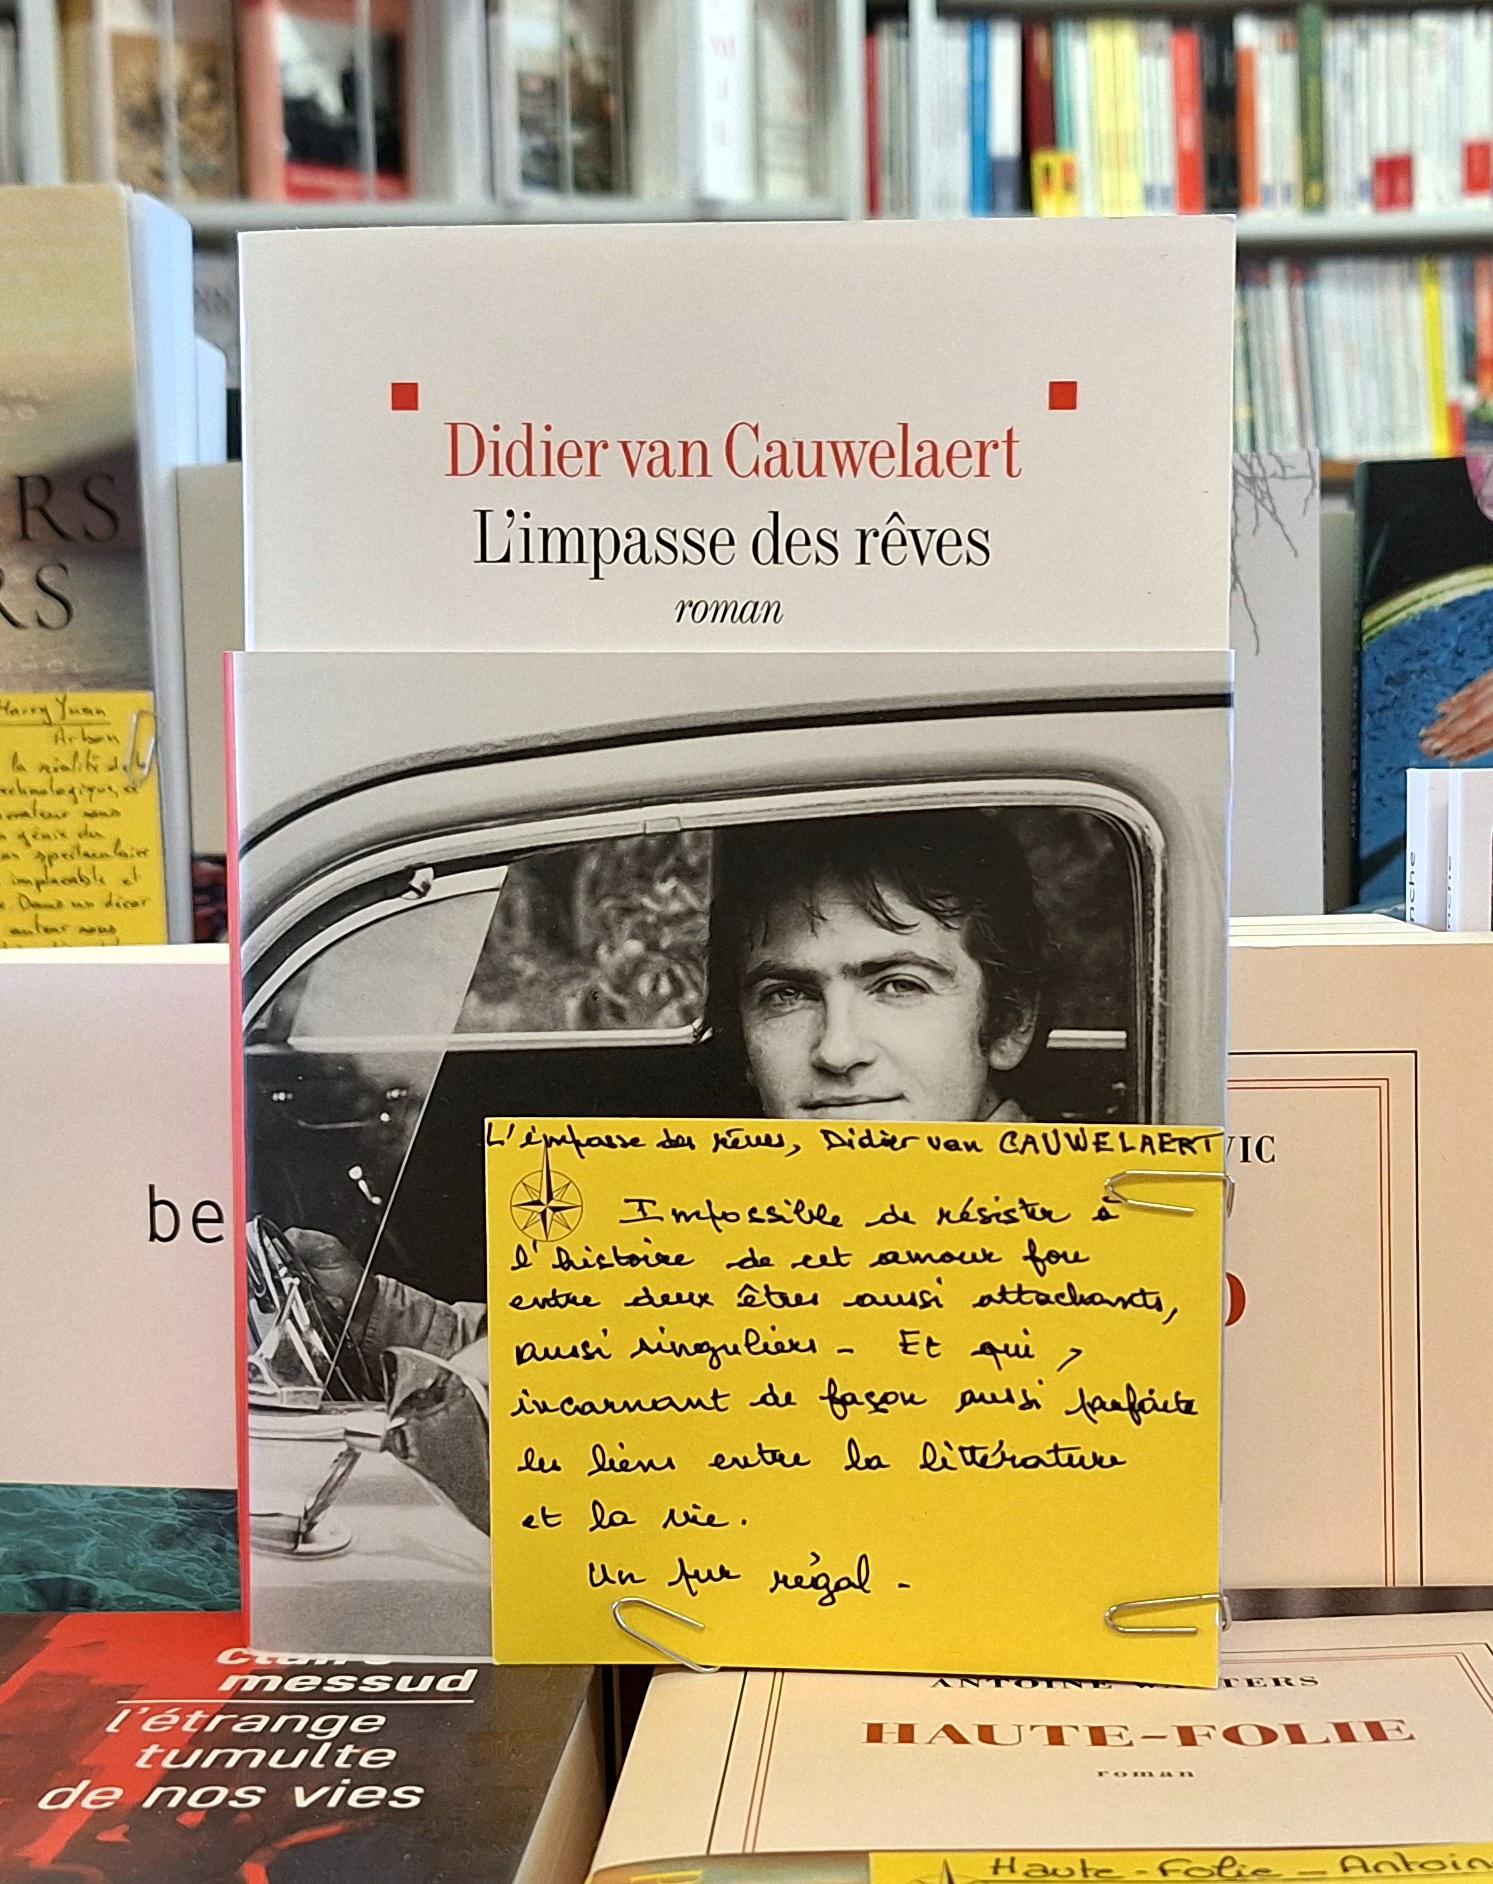 Didier van Cauwelaert
L'impasse des rêves
roman
L'impasse des rêves, Didier van CAUWELAERT
Impossible de résister à
l'histoire de cet amour fou
entre deux êtres aussi attachants,
aussi singuliers - Et qui,
incarnant de façon aussi parfaite
les liens entre la littérature
et la vie.
Un pur régal -
RS
RS
Harry Yuan
la réalité de
technologique, et
nous
génie du
spectaculaire
implacable et
Dans un décor
auteur nous
be
VIC
O
nche
nche
claire
messud
l'étrange
tumulte
de nos vies
ANTOINE W TERS
HAUTE-FOLIE
roman
Haute-Folie - Antoin